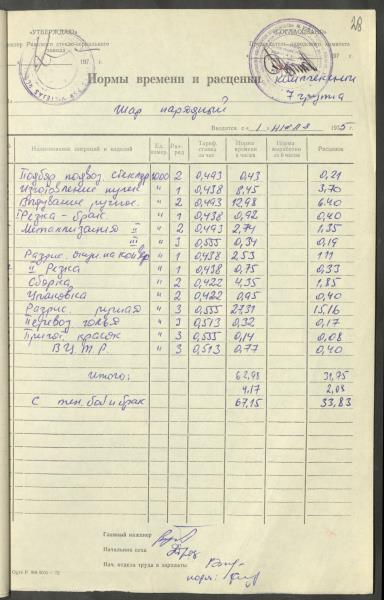 28
«УТВЕРЖДАЮ»
«СОГЛАСОВАНО»
197 г.
197 г.
Нормы времени и расценки
7 группа
Шар парадный
Вводится с « 1 » января 1975 г.
Наименование операций и изделий
Ед. измер.
Раз-ряд
Тариф. ставка за час
Норма времени в часах
Норма выработки за 8 часов
Расценки
Подбор подвоз. стеклодр 1000 2 0,493 0,43 0,21
Изготовление пулек " 1 0,438 8,45 3,70
Выдувание ручное " 2 0,493 12,98 6,40
I Резка - брак " 1 0,438 0,92 0,40
Металлизация II " 2 0,493 2,74 1,35
III " 3 0,555 0,34 0,19
" 1 0,438 2,53 1,11
II Резка " 1 0,438 0,75 0,33
Сборка " 2 0,422 4,35 1,85
Упаковка " 2 0,422 0,95 0,40
Разрис. ручная " 3 0,555 27,31 15,16
Перевоз голья " 3 0,513 0,32 0,17
Пригот. красок " 3 0,555 0,14 0,08
В Ц Т Р. " 3 0,513 0,77 0,40
Итого: 62,98 31,75
4,17 2,08
С тех. боб и брак 67,15 33,83
Главный инженер
Начальник цеха
Нач. отдела труда и зарплаты